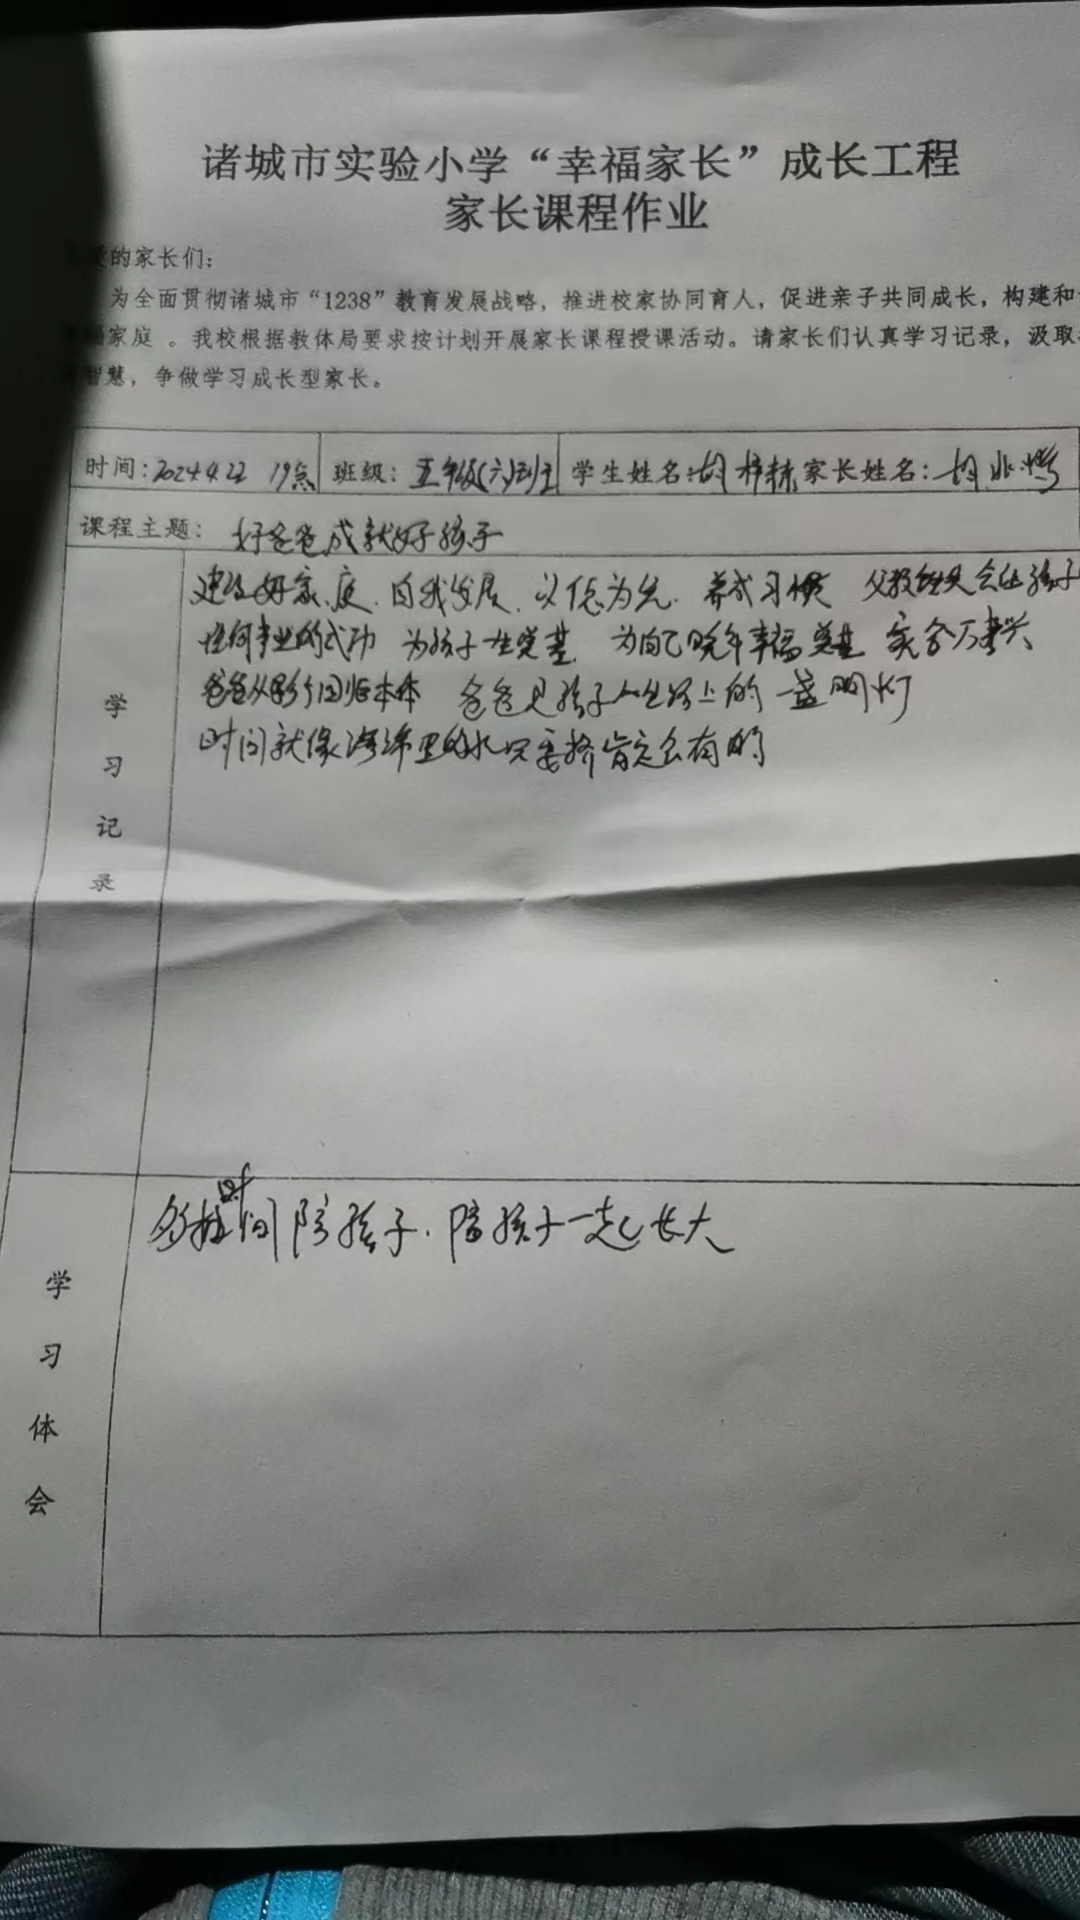 诸城市实验小学“幸福家长”成长工程
家长课程作业
的家长们：
为全面贯彻诸城市“1238”教育发展战略，推进校家协同育人，促进亲子共同成长，构建和
家庭 。我校根据教体局要求按计划开展家长课程授课活动。请家长们认真学习记录，汲取
智慧，争做学习成长型家长。
时间：2024.4.22 19点 班级：五年级(六)班 学生姓名：胡梓 家长姓名：胡
课程主题：好爸爸成就好孩子
学习记录
建设好家庭.自我发展.以德为先.养成习惯 父教 会让孩子
任何事业的成功 为孩子 奠基.为自己晚年幸福奠基 家合万事兴
爸爸从 回归本体 爸爸是孩子人生路上的一盏明灯
时间就像海绵里的水只要挤肯定会有的
学习体会
多抽时间陪孩子.陪孩子一起长大